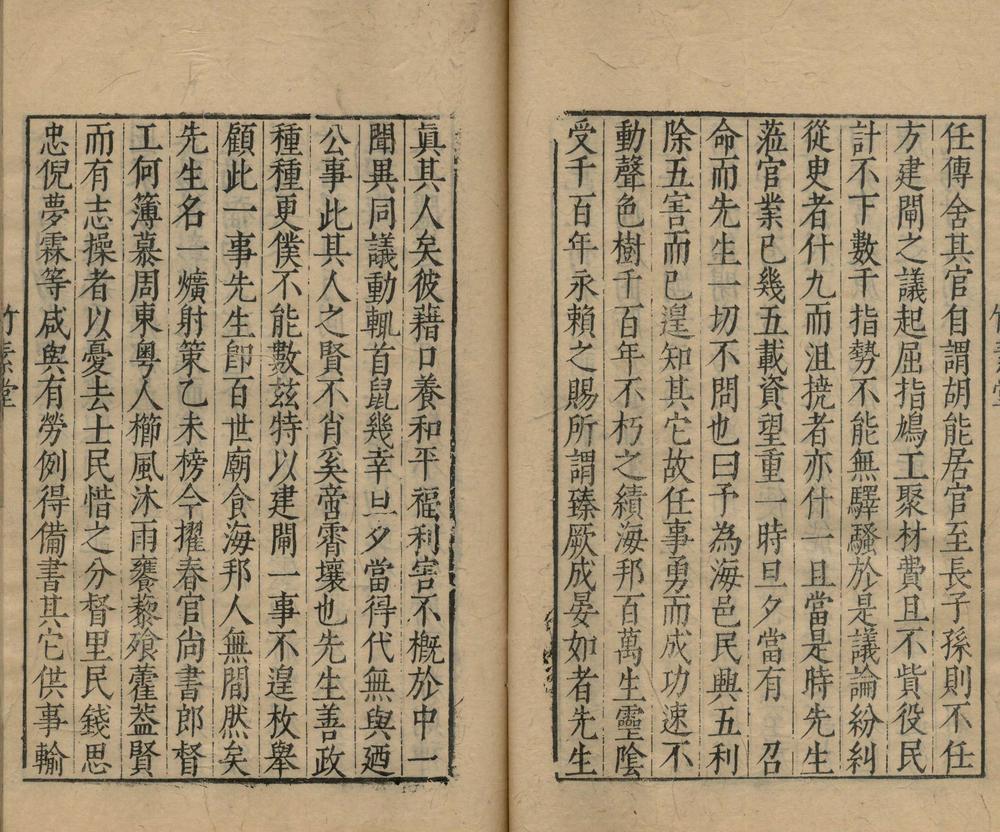 任傳舍其官自謂胡能居官至長子孫則不任
方建閘之議起屈指鳩工聚材費且不貲役民
計不下數千指勢不能無驛騷於是議論紛糾
從臾者什九而沮撓者亦什一且當是時先生
蒞官業已幾五載資望重一時旦夕當有 召
命而先生一切不問也曰予為海邑民興五利
除五害而已遑知其它故任事勇而成功速不
動聲色樹千百年不朽之績海邦百萬生靈陰
受千百年永賴之賜所謂臻厥成晏如者先生
眞其人矣彼藉口養和平 福利害不概於中一
聞異同議動輒首鼠幾幸旦夕當得代無與廼
公事此其人之賢不肖奚啻霄壤也先生善政
種種更僕不能數茲特以建閘一事不遑枚舉
顧此一事先生卽百世廟食海邦人無間然矣
先生名一爌射策乙未榜今擢春官尚書郎督
工何簿慕周東粵人櫛風沐雨饔藜飧藿葢賢
而有志操者以憂去士民惜之分督里民錢思
忠倪夢霖等咸與有勞例得備書其它供事輸
竹素堂